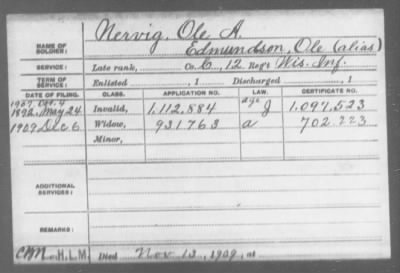 Nervig, Ole A.
NAME OF SOLDIER: Edmundson, Ole (alias)
SERVICE: Late rank, Co. C, 12 Reg't Wis. Inf.
TERM OF SERVICE: Enlisted , 1 Discharged , 1
DATE OF FILING. CLASS. APPLICATION NO. LAW. CERTIFICATE NO.
1907 Oct. 4 age
1892, May 24 Invalid, 1,112,884 J 1,097,523
1909 Dec 6 Widow, 931763 a 702,223
Minor,
ADDITIONAL SERVICES:
REMARKS:
H.L.M. Died Nov 13, 1909, at